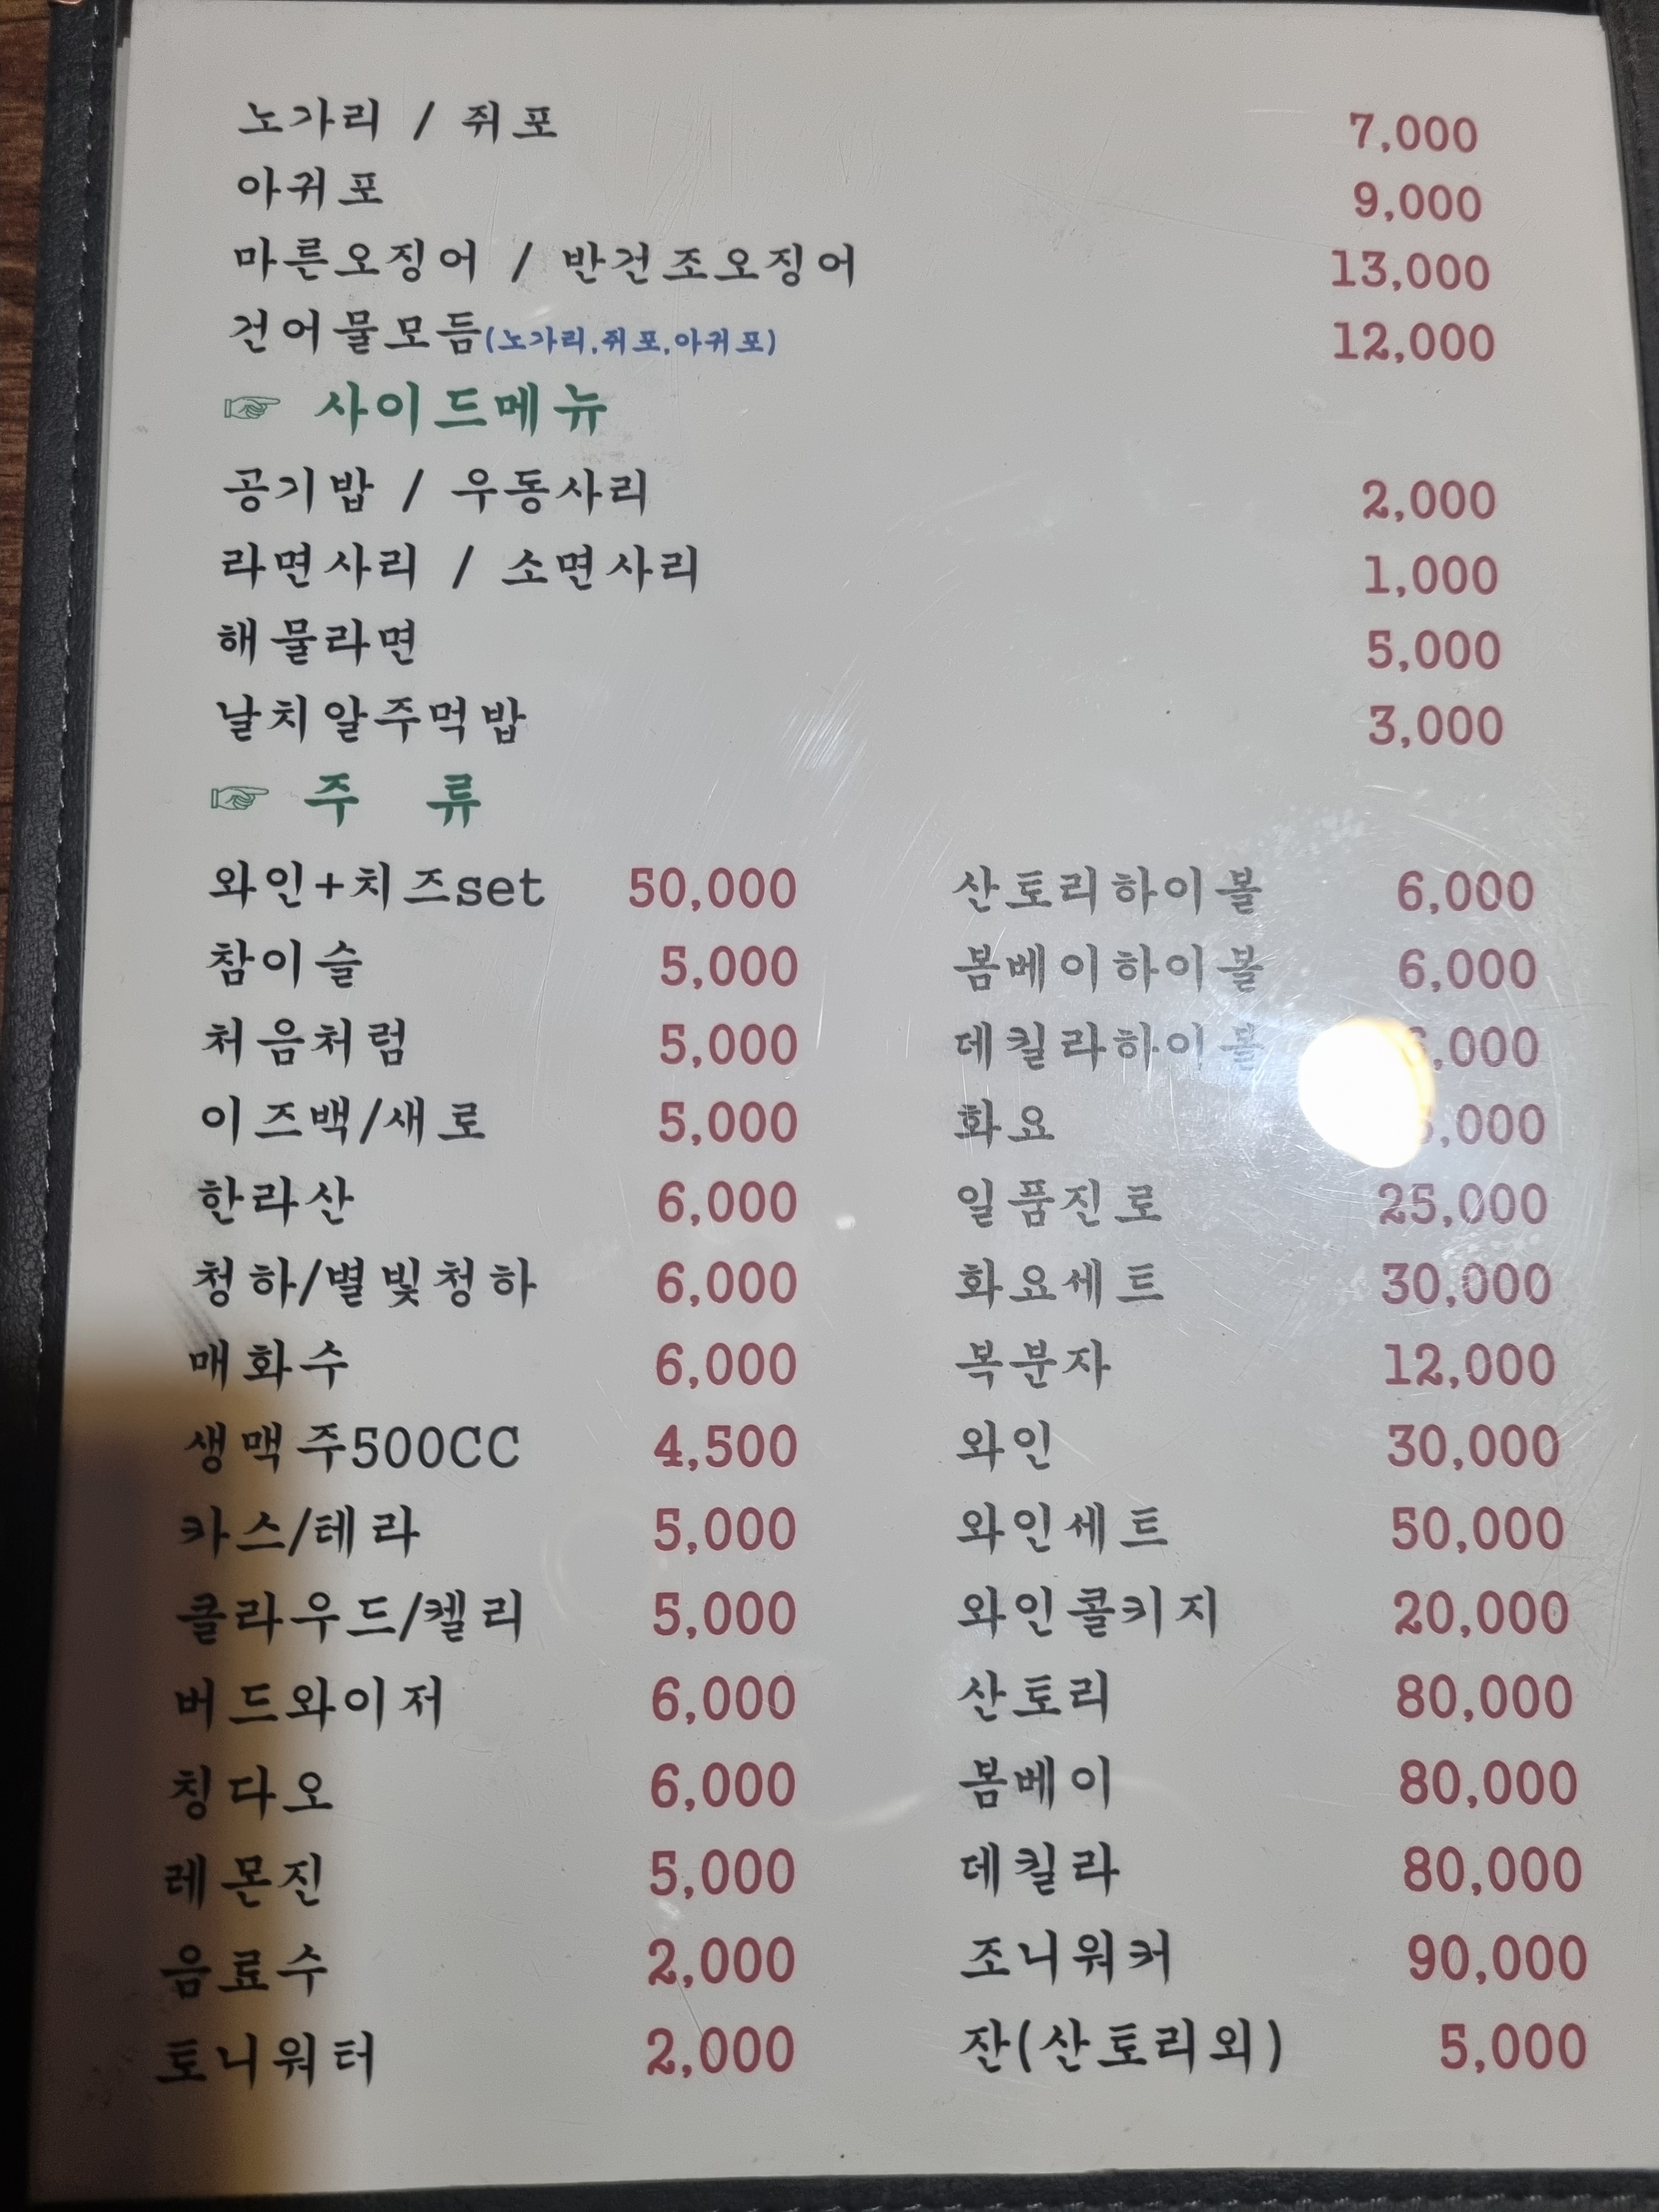 노가리 / 쥐포 7,000
아귀포 9,000
마른오징어 / 반건조오징어 13,000
건어물모듬(노가리,쥐포,아귀포) 12,000
☞ 사이드메뉴
공기밥 / 우동사리 2,000
라면사리 / 소면사리 1,000
해물라면 5,000
날치알주먹밥 3,000
☞ 주 류
와인+치즈set 50,000
참이슬 5,000
처음처럼 5,000
이즈백/새로 5,000
한라산 6,000
청하/별빛청하 6,000
매화수 6,000
생맥주500CC 4,500
카스/테라 5,000
클라우드/켈리 5,000
버드와이저 6,000
칭다오 6,000
레몬진 5,000
음료수 2,000
토니워터 2,000
산토리하이볼 6,000
봄베이하이볼 6,000
데킬라하이볼
화요
일품진로 25,000
화요세트 30,000
복분자 12,000
와인 30,000
와인세트 50,000
와인콜키지 20,000
산토리 80,000
봄베이 80,000
데킬라 80,000
조니워커 90,000
잔(산토리외) 5,000